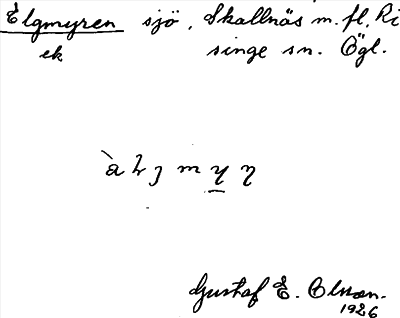 Elgmyren sjö, Skallnäs m. fl. Ri
ek singe sn. Ögl.
Gustaf E. Olsson.
1926